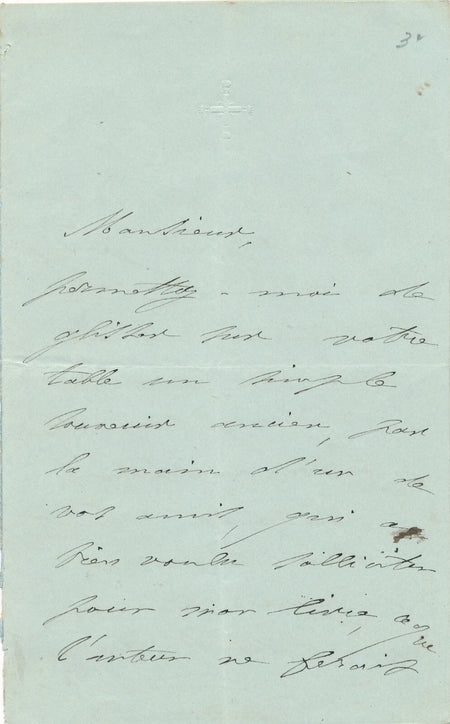 3v
Monsieur,
permettez-moi de
glisser sur votre
table un simple
souvenir ancien, par
la main d'un de
vos amis, qui a
bien voulu solliciter
pour mon livre, ce que
l'auteur ne ferait